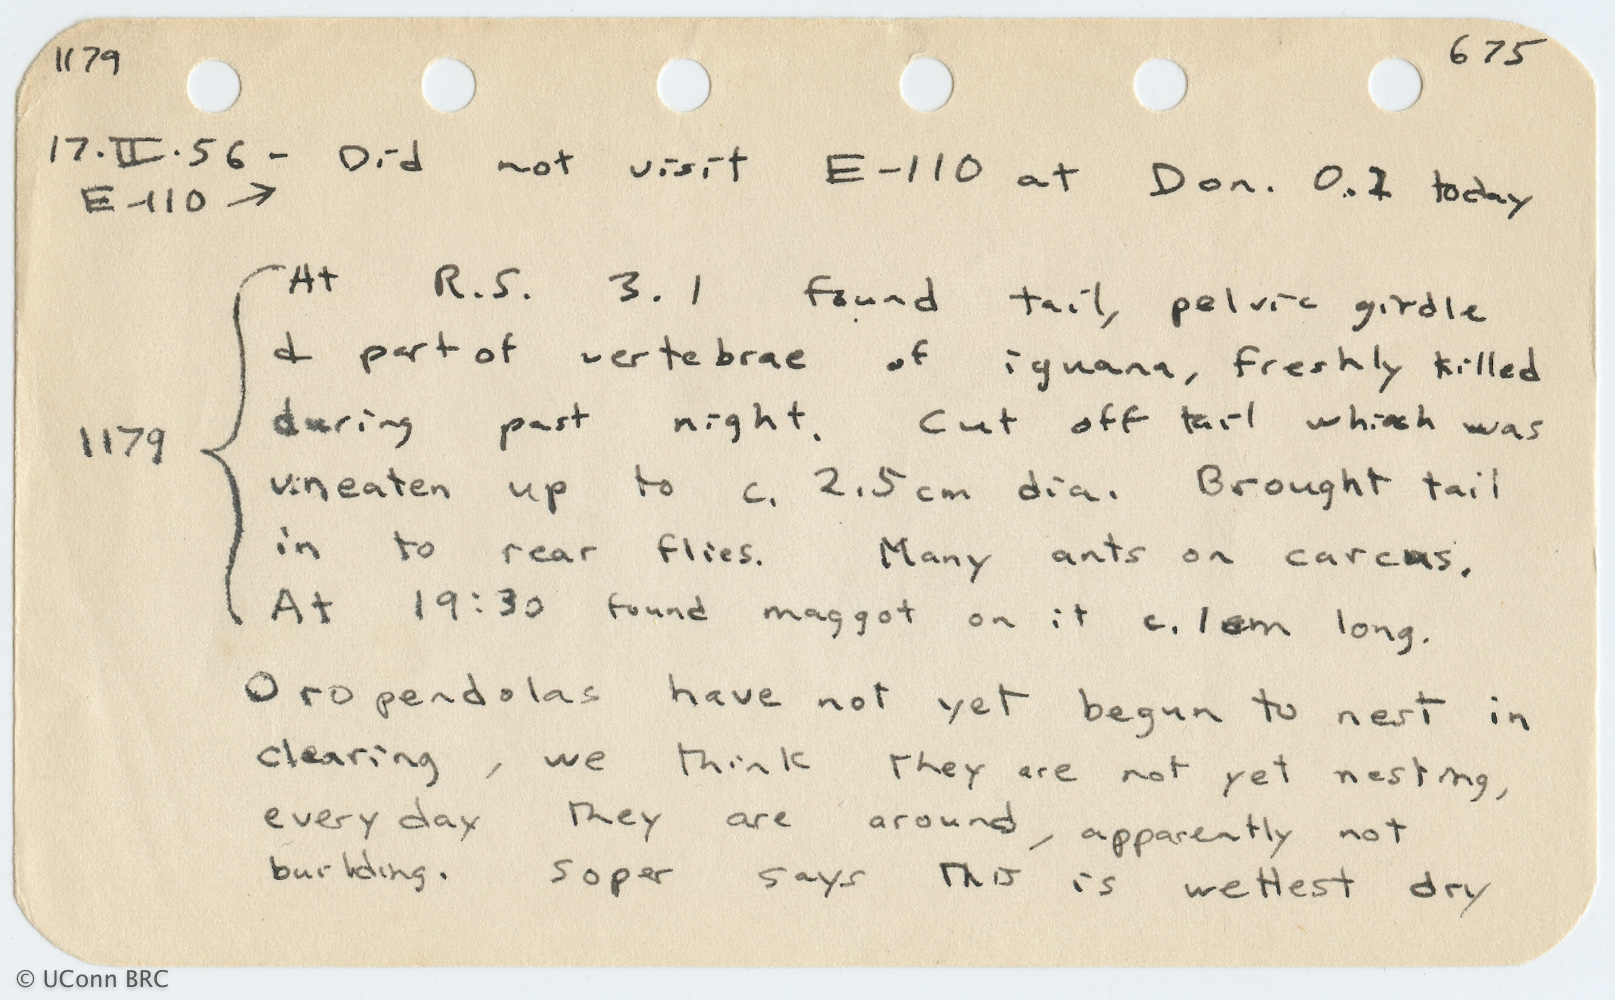 1179 675
17.II.56 - Did not visit E-110 at Don. 0.1 today
E-110 →
At R.S. 3.1 found tail, pelvic girdle
& part of vertebrae of iguana, freshly killed
during past night. Cut off tail which was
1179
uneaten up to c. 2.5 cm dia. Brought tail
in to rear flies. Many ants on carcas.
At 19:30 found maggot on it c. 1 cm long.
Oropendolas have not yet begun to nest in
clearing, we think they are not yet nesting,
every day they are around, apparently not
building. Soper says this is wettest dry
© UConn BRC